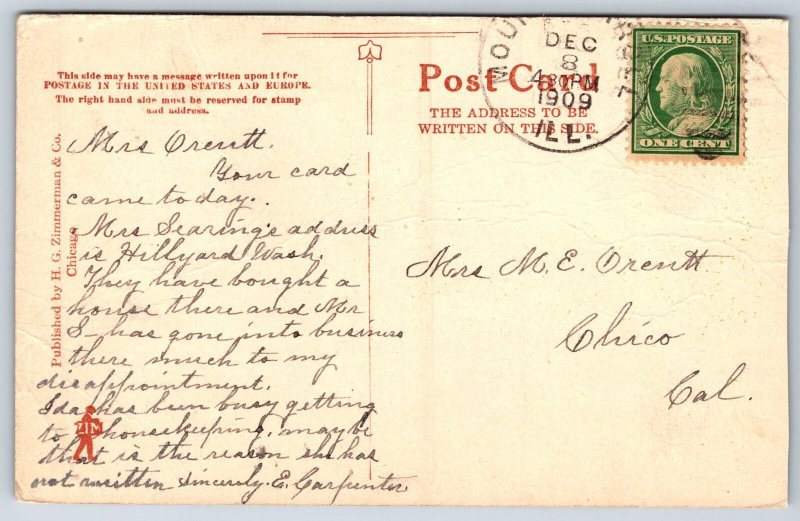 This side may have a message written upon it for
POSTAGE IN THE UNITED STATES AND EUROPE.
The right hand side must be reserved for stamp
and address.
Post Card
THE ADDRESS TO BE
WRITTEN ON THIS SIDE.
DEC
8
4 30 PM
1909
ILL.
U.S. POSTAGE
ONE CENT
Published by H. G. Zimmerman & Co.
Chicago
Mrs Orcutt.
Your card
came today..
Mrs Searing's address
is Hillyard Wash.
They have bought a
house there and Mr
S- has gone into business
there much to my
disappointment.
Ida has been busy getting
to housekeeping, may be
that is the reason she has
not written Sincerely. E. Carpenter
ZIM
Mrs M. E. Orcutt
Chico
Cal.